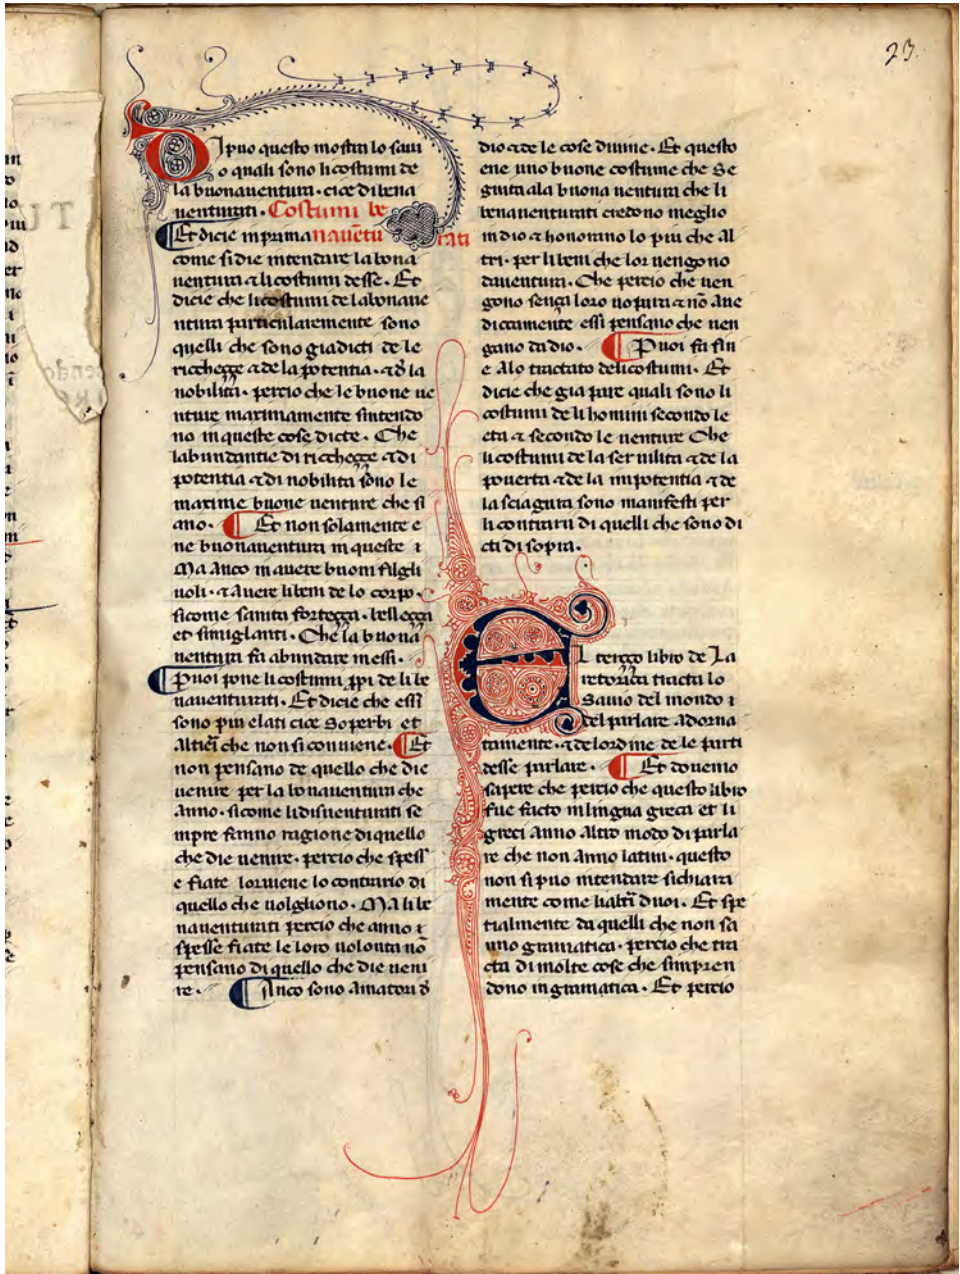 23.
Dipuo questo mostra lo savi
o quali sono li costumi de
la buonaventura · cioe di bena
venturati · Costumi be
Et dicie in prima navētu rati
come si die intendare la bona
ventura & li costumi desse · Et
dicie che li costumi de la bonave
ntura particularemente sono
quelli che sono gia dicti de le
ricchezze & de la potentia · & d̄ la
nobilita · percio che le buone ve
nture maximamente sintendo
no in queste cose dicte · Che
labundantie di ricchezze & di
potentia & di nobilita sono le
maxime buone venture che si
ano · Et non solamente e
ne buonaventura in queste ·
Ma anco in avere buoni filgli
uoli · & avere li beni de lo corpo ·
sicome sanita fortezza · bellezza
et simiglianti · Che la buona
ventura fa abundare in essi ·
Puoi pone li costumi ꝓpi de li be
naventurati · Et dicie che essi
sono piu elati cioe Soperbi et
Altieri che non si conviene · Et
non pensano de quello che die
venire per la bonaventura che
anno · sicome li disventurati se
mpre fanno ragione di quello
che die venire · percio che spess
e fiate lor viene lo contrario di
quello che volgliono · Ma li be
naventurati percio che anno
spesse fiate le loro volonta nō
pensano di quello che die veni
re · Anco sono amatori d̄
dio & de le cose divine · Et questo
ene uno buone costume che Se
guita a la buona ventura che li
benaventurati credono meglio
in dio & honorano lo piu che al
tri · per li beni che lor vengono
daventura · Che percio che ven
gono senza loro uopura & nō ave
dictamente essi pensano che ven
gano da dio · Puoi fa fin
e Alo tractato deli costumi · Et
dicie che gia pare quali sono li
costumi de li homini secondo le
eta & secondo le venture Che
li costumi de la servilita & de la
poverta & de la impotentia & de
la sciagura sono manifesti per
li contrarii di quelli che sono di
cti di sopra ·
El terzo libro de La
retorica tracta lo
Savio del mondo
del parlare Adorna
tamente · & de lordine de le parti
desse parlare · Et dovemo
sapere che percio che questo libro
fue facto in lingua greca et li
greci Anno Altro modo di parla
re che non Anno latini · questo
non si puo intendare si chiara
mente come li altri duoi · Et spe
tialmente da quelli che non sa
uno gramatica · percio che tra
cta di molte cose che simpren
dono in gramatica · Et percio